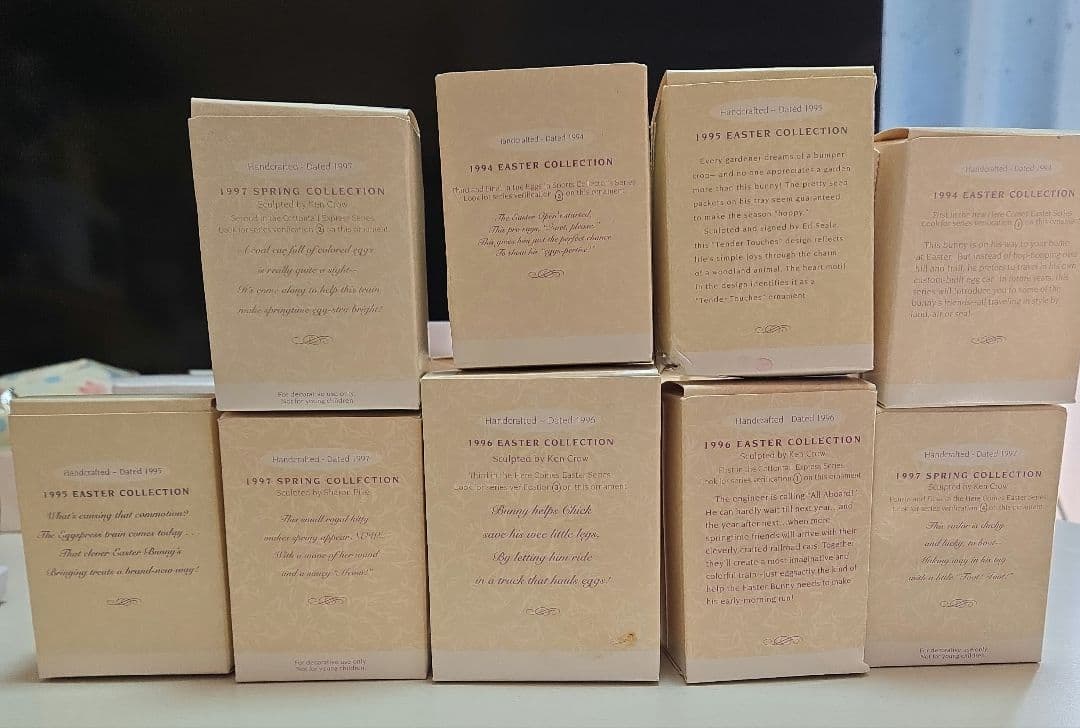 Handcrafted - Dated 1997
1997 SPRING COLLECTION
Sculpted by Ken Crow
Second in the Cottontail Express Series
Look for series verification 2 on this ornament.
A coal car full of colored eggs
is really quite a sight—
It's come along to help this train
make springtime egg-stra bright!
For decorative use only.
Not for young children.
Handcrafted - Dated 1994
1994 EASTER COLLECTION
Third and Final in the Eggs in Sports Collector's Series
Look for series verification 3 on this ornament.
The Easter Open's started,
This pro says, "Quiet, please."
This gives him just the perfect chance
To show his "eggs-pertise!"
Handcrafted – Dated 1995
1995 EASTER COLLECTION
Every gardener dreams of a bumper
crop— and no one appreciates a garden
more than this bunny! The pretty seed
packets on his tray seem guaranteed
to make the season "hoppy."
Sculpted and signed by Ed Seale,
this "Tender Touches" design reflects
life's simple joys through the charm
of a woodland animal. The heart motif
in the design identifies it as a
"Tender Touches" ornament.
Handcrafted - Dated 1994
1994 EASTER COLLECTION
First in the new Here Comes Easter Series
Look for series verification 1 on this ornament
This bunny is on his way to your home
at Easter. But instead of hop-hopping over
hill and trail, he prefers to travel in his own
custom-built egg car. In future years, this
series will introduce you to some of the
bunny's friends—all traveling in style by
land, air or sea!
Handcrafted – Dated 1995
1995 EASTER COLLECTION
What's causing that commotion?
The Eggspress train comes today . . .
That clever Easter Bunny's
Bringing treats a brand-new way!
Handcrafted - Dated 1997
1997 SPRING COLLECTION
Sculpted by Sharon Pike
This small royal kitty
makes spring appear NOW—
With a wave of her wand
and a saucy "Meow!"
For decorative use only.
Not for young children.
Handcrafted – Dated 1996
1996 EASTER COLLECTION
Sculpted by Ken Crow
Third in the Here Comes Easter Series
Look for series verification 3 on this ornament.
Bunny helps Chick
save his wee little legs,
By letting him ride
in a truck that hauls eggs!
Handcrafted - Dated 1996
1996 EASTER COLLECTION
Sculpted by Ken Crow
First in the Cottontail Express Series
Look for series verification 1 on this ornament
The engineer is calling "All Aboard!"
He can hardly wait till next year...and
the year after next...when more
springtime friends will arrive with their
cleverly crafted railroad cars. Together
they'll create a most imaginative and
colorful train—just eggsactly the kind of
help the Easter Bunny needs to make
his early-morning run!
Handcrafted - Dated 1997
1997 SPRING COLLECTION
Sculpted by Ken Crow
Fourth and Final in the Here Comes Easter Series
Look for series verification 4 on this ornament.
This sailor is ducky
and lucky, to boot—
Making way in his tug
with a little "Toot! Toot!"
For decorative use only.
Not for young children.